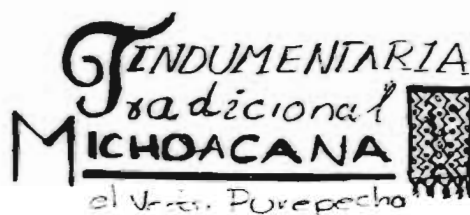 INDUMENTARIA
Tradicional
MICHOACANA
el Purepecha